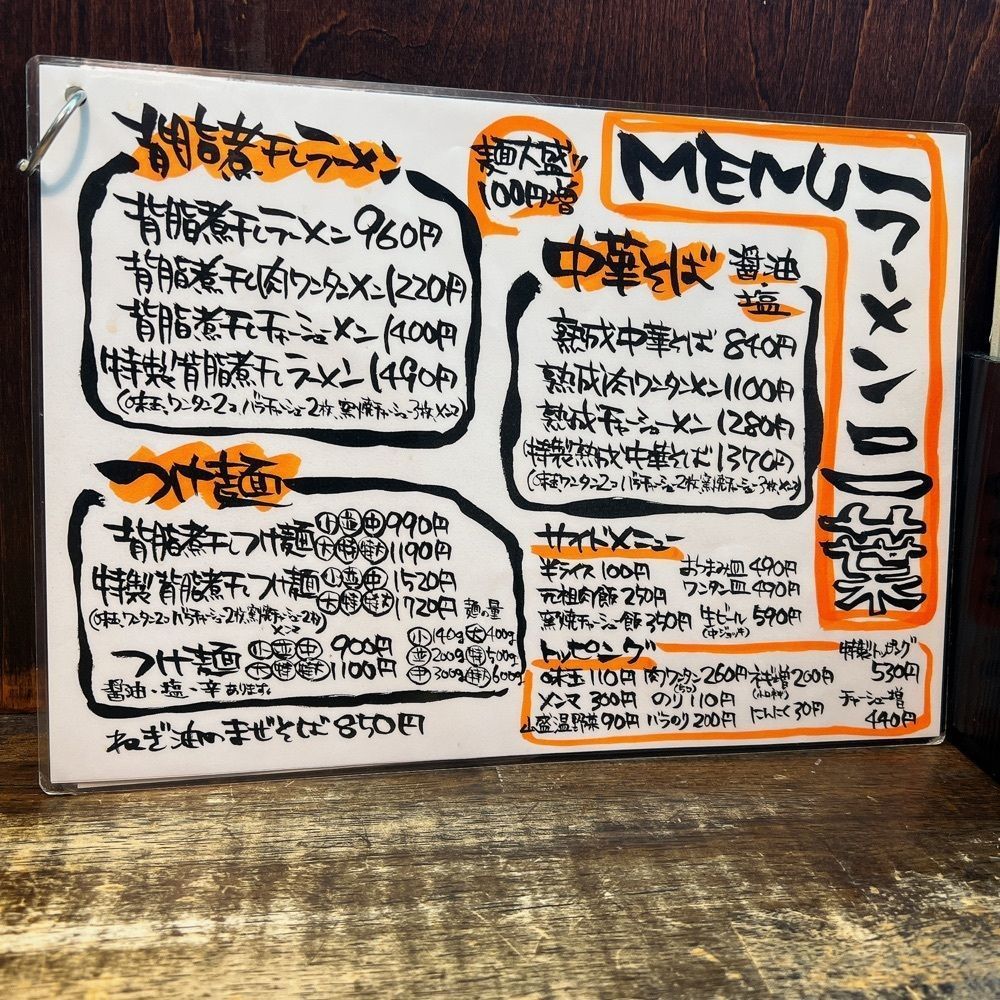 MENU
ラーメン二葉
麺大盛り
100円増
背脂煮干しラーメン
背脂煮干しラーメン 960円
背脂煮干し肉ワンタンメン 1220円
背脂煮干しチャーシューメン 1400円
特製背脂煮干しラーメン 1490円
(味玉、ワンタン2コ、バラチャーシュー2枚、窯焼チャーシュー3枚、メンマ)
つけ麺
背脂煮干しつけ麺 小並中 990円
大特特大 1190円
特製背脂煮干しつけ麺 小並中 1520円
大特特大 1720円
(味玉、ワンタン2コ、バラチャーシュー2枚、窯焼チャーシュー2枚、メンマ)
つけ麺 小並中 900円
大特特大 1100円
醤油・塩・辛あります。
麺の量
小140g 大400g
並200g 特500g
中300g 特大600g
ねぎ油のまぜそば 850円
中華そば 醤油・塩
熟成中華そば 840円
熟成肉ワンタンメン 1100円
熟成チャーシューメン 1280円
特製熟成中華そば 1370円
(味玉、ワンタン2コ、バラチャーシュー2枚、窯焼チャーシュー3枚、メンマ)
サイドメニュー
半ライス 100円 おつまみ皿 490円
元祖肉飯 250円 ワンタン皿 490円
窯焼チャーシュー飯 350円 生ビール 590円
(中ジョッキ)
トッピング
味玉 110円 肉ワンタン 260円 ネギ増 200円
メンマ 300円 のり 110円
山盛温野菜 90円 バラのり 200円 にんにく 30円
特製トッピング
530円
チャーシュー増
440円